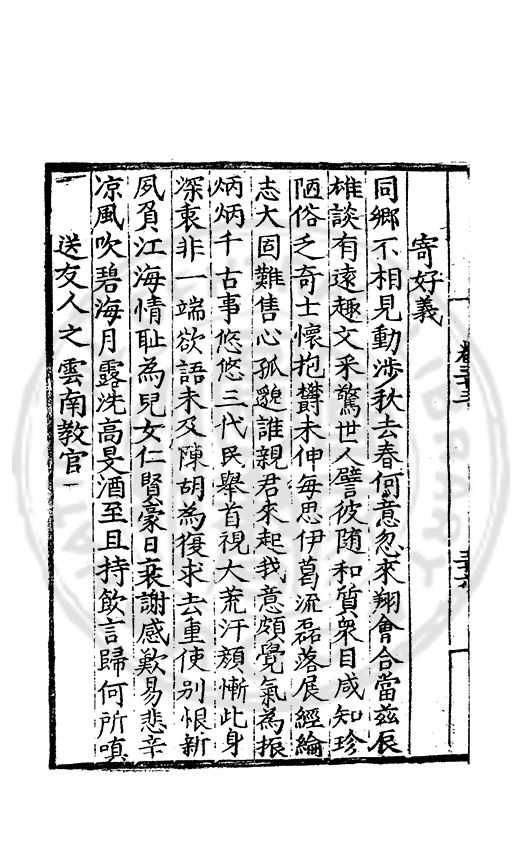 寄好義
同鄉不相見動渉秋去春何意忽來翔會合當兹辰
雄談有遠趣文采驚世人譬彼随和質衆目咸知珍
陋俗乏奇士懷抱欝未伸每思伊葛流磊落展經綸
志大固難售心孤邈誰親君來起我意頗覺氣為振
炳炳千古事悠悠三代民舉首視大荒汗顔慚此身
深衷非一端欲語未及陳胡為復求去重使别恨新
夙負江海情耻為兒女仁賢豪日衰謝感歎易悲辛
凉風吹碧海月露洗高旻酒至且持飲言歸何所嗔
送友人之雲南教官